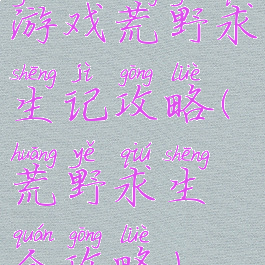 游戏荒野求
shēng jì gōng lüè
生记攻略(
huāng yě qiú shēng
荒野求生
quán gōng lüè
全攻略)